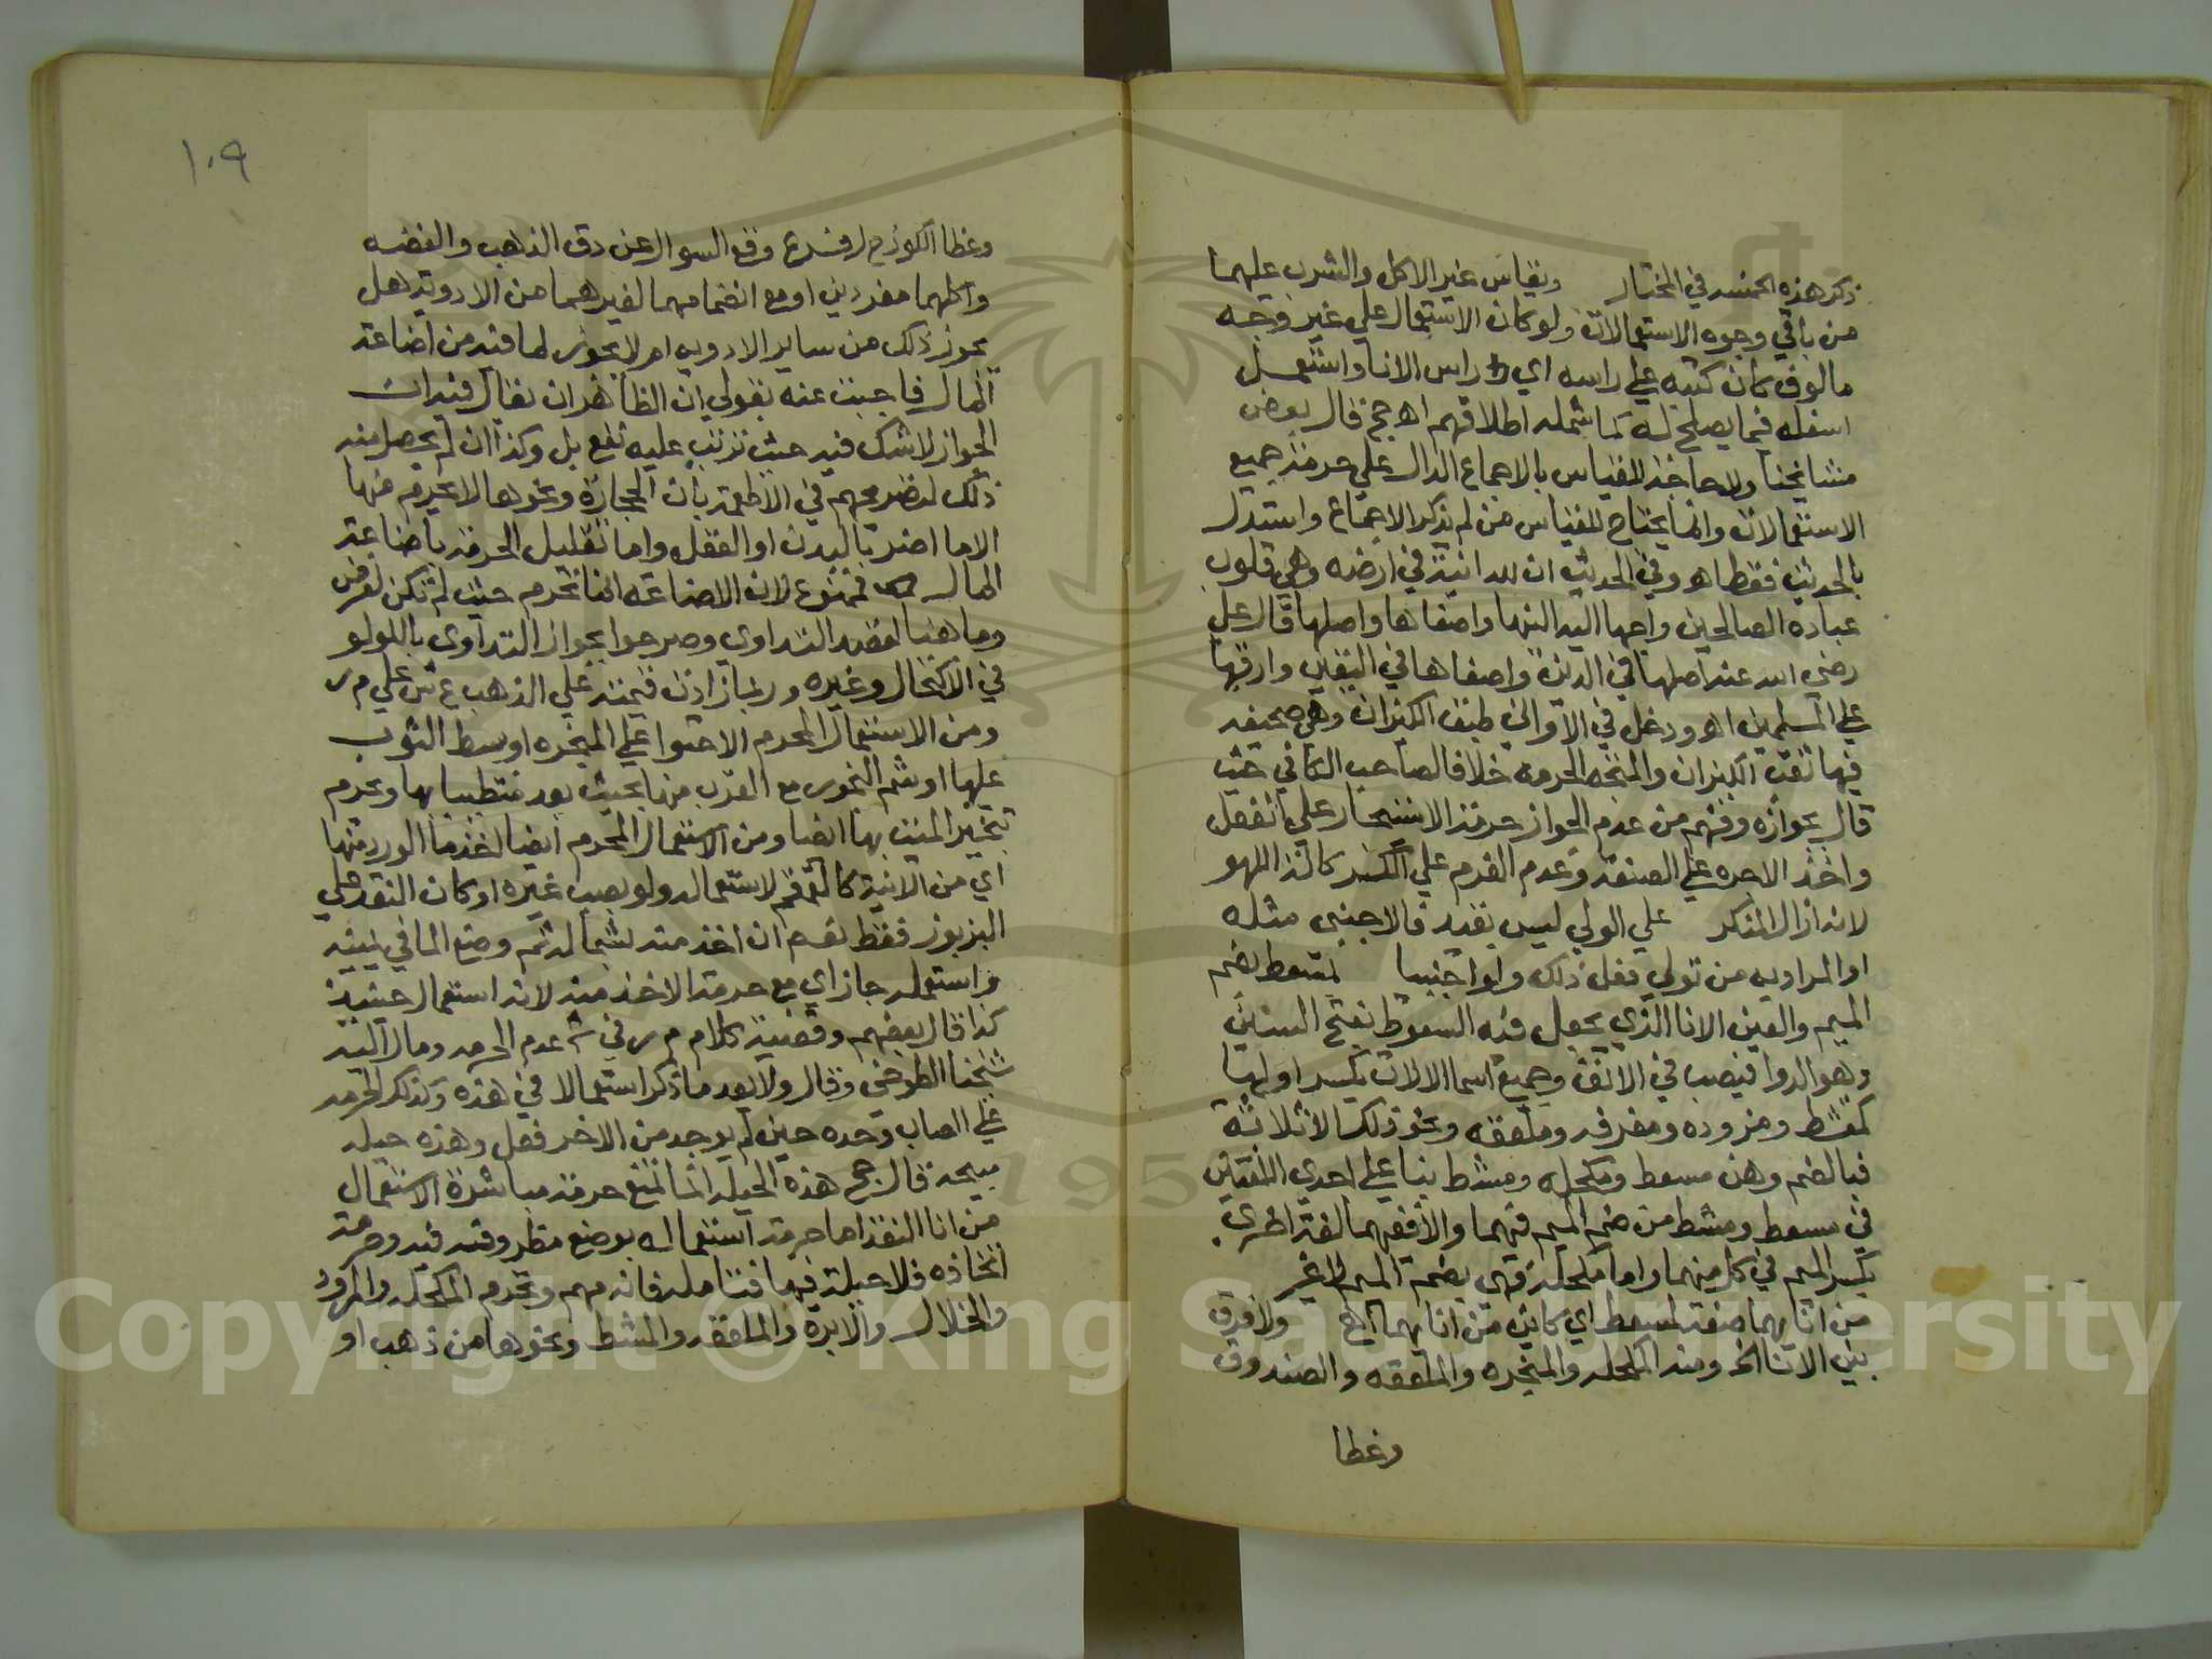 ذكر هذه الخمسه في المختار ويقاس غير الاكل والشرب عليهما
من باقي وجوه الاستعمالات ولو كان الاستعمال علي غير وجه
مالوف كان كتبه علي راسه اي راس الانا واستعمل
اسفله فيما يصلح له كما شمله اطلاقهم اه حج قال بعض
مشايخنا ولا حاجة للقياس بالاجماع الدال علي حرمة جميع
الاستعمالات وانما يحتاج للقياس من لم يذكر الاجماع واستدل
بالحديث فقط اه وفي الحديث ان لله انية في ارضه وهي قلوب
عباده الصالحين واحبها اليه الينها واصفاها واصلبها قال علي
رضي الله عنه اصلبها في الدين واصفاها في اليقين وارقها
علي المسلمين اه ودخل في الاواني طبق الكيزان وهي صحيفه
فيها ثقب الكيزان والمتجه الحرمه خلافا لصاحب الكافي حيث
قال بجوازه وفهم من عدم الجواز حرمة الاستيجار علي الفعل
واخذ الاجره علي الصنعة وعدم الغرم علي الكسر كالة اللهو
لانه ازال المنكر علي الولي ليس بقيد فالاجنبي مثله
او المراد به من تولي فعل ذلك ولو اجنبيا لمسعط بضم
الميم والعين الانا الذي يجعل فيه السعوط بفتح السين
وهو الدوا فيصب في الانف وجميع اسما الالات بكسر اولها
كمقشط ومزوده ومغرفه وملعقه ونحو ذلك الا ثلاثة
فبالضم وهن مسعط ومكحله ومشط بنا علي احدي اللغتين
في مسعط ومشط من ضم الميم فيهما والا ففيهما لغة اخري
بكسر الميم في كل منهما واما مكحلة فهي بضمة الميم لا غير
من انايهما صفة لمسعط اي كائن من انايهما الخ ولا فرق
بين الانا الخ ومنه المكحله والمبخره والملعقه والصندوق
وغطا
وغطا الكوز فرع وقع السوال عن دق الذهب والفضه
واكلهما مفردين او مع انضمامهما لغيرهما من الادوية هل
يجوز ذلك من ساير الادويه ام لا يجوز لما فيه من اضاعة
المال فاجبت عنه بقولي ان الظاهر ان يقال فيه ان
الجواز لا شك فيه حيث ترتب عليه نفع بل وكذا ان لم يحصل منه
ذلك لتصريحهم في الاطعمة بان الحجارة ونحوها لا يحرم منها
الا ما اضر بالبدن او العقل واما تعليل الحرمة باضاعة
المال فممنوع لان الاضاعه انما تحرم حيث لم تكن لغرض
وما هنا لقصد التداوي وصرحوا بجواز التداوي باللولو
في الاكتحال وغيره وربما زادت قيمته علي الذهب ع ش علي م ر
ومن الاستعمال المحرم الاحتوا علي المبخره او بسط الثوب
عليها او شم البخور مع القرب منها بحيث يعد متطيبا بها ويحرم
تبخير الميت بها ايضا ومن الاستعمال المحرم ايضا اخذ ما الورد منها
اي من الانية كالقمقم لاستعماله ولو بصب غيره او كان النقد علي
البزبوز فقط نعم ان اخذ منه بشماله ثم وضع الما في يمينه
واستعمله جاز اي مع حرمة الاخذ منه لانه استعمال حينيذ
كذا قال بعضهم وقضية كلام م ر في ش عدم الحرمه ومال اليه
شيخنا الطوخي وقال ولا يعد ما ذكر استعمالا في هذه وكذلك الحرمه
علي الصاب وحده حين لم يوجد من الاخر فعل وهذه حيله
مبيحة قال حج هذه الحيلة انما تمنع حرمة مباشرة الاستعمال
من انا النقد اما حرمة استعماله بوضع مظروفه فيه وحرمة
اتخاذه فلا حيلة فيها فتامله فانه مهم ويحرم المكحله والمرود
والخلال والابرة والملعقه والمشط ونحوها من ذهب او
١٠٩
Copyright © King Saud University
1957